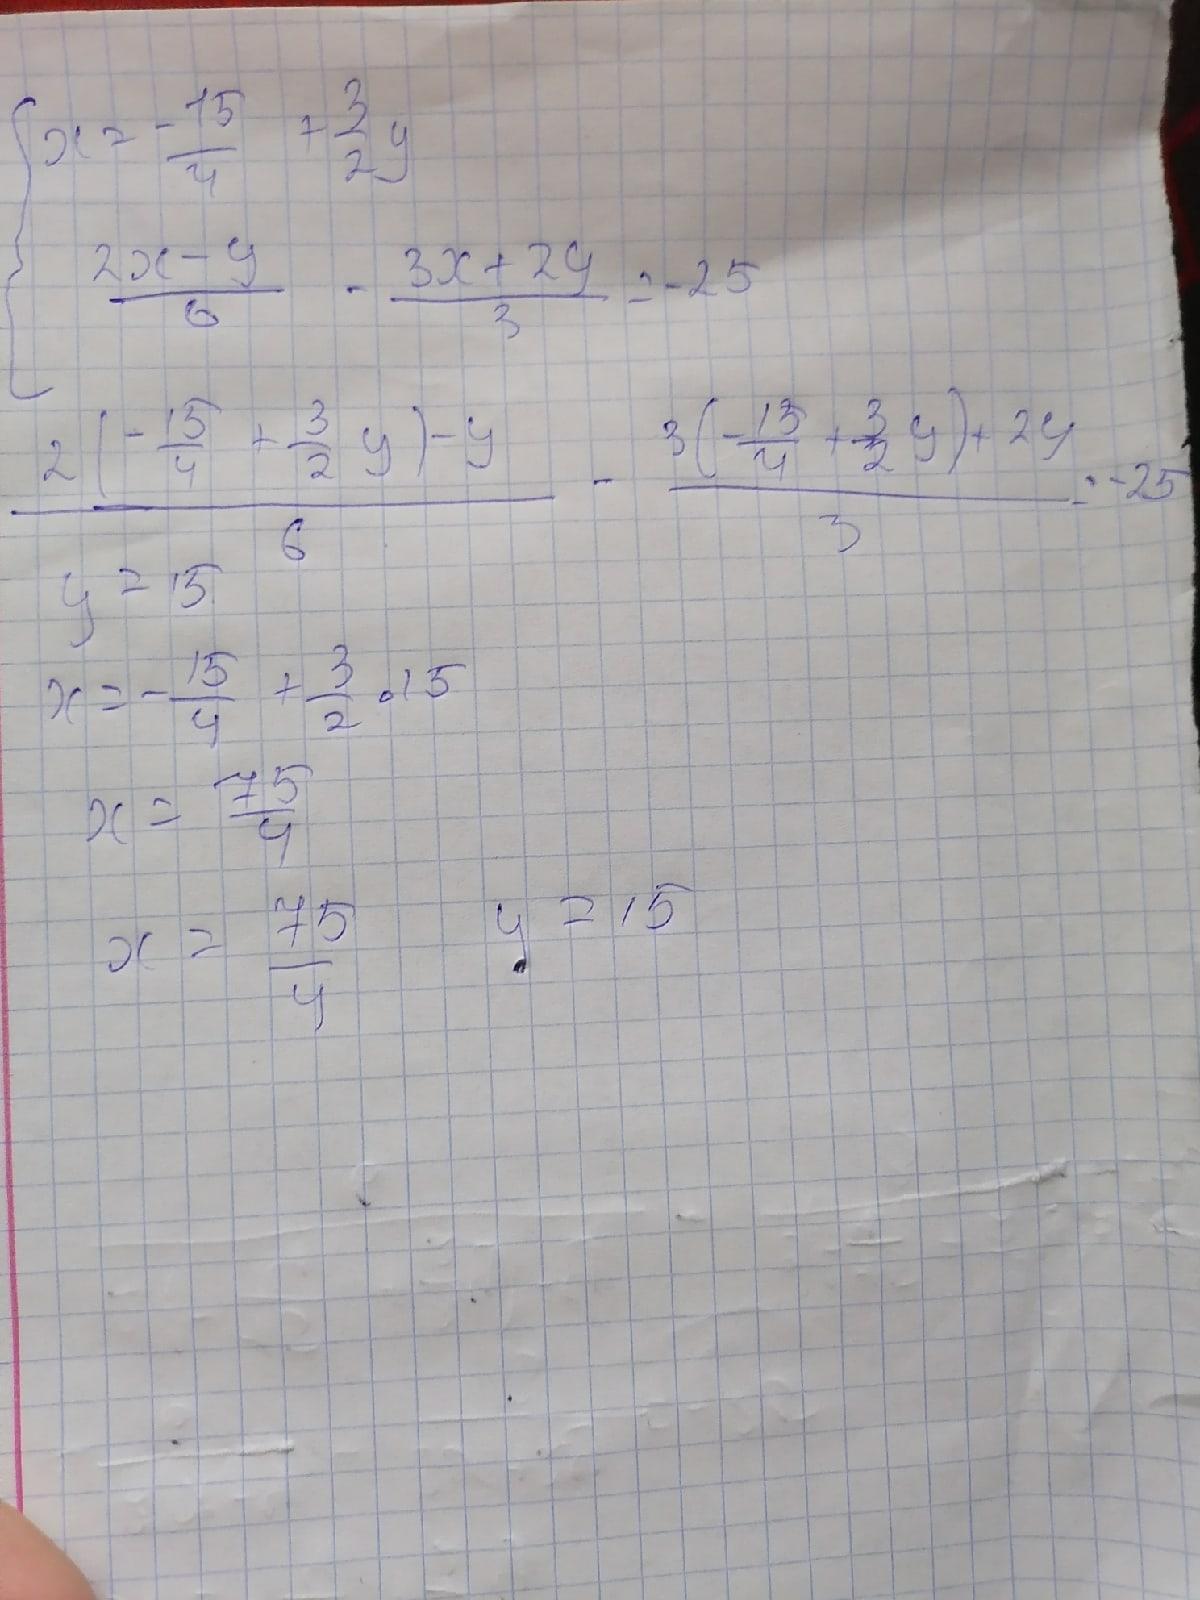 x = -15/4 + 3/2 y
(2x - y)/6 - (3x + 2y)/3 = -25
(2(-15/4 + 3/2 y) - y)/6 - (3(-15/4 + 3/2 y) + 2y)/3 = -25
y = 15
x = -15/4 + 3/2 · 15
x = 75/4
x = 75/4 y = 15